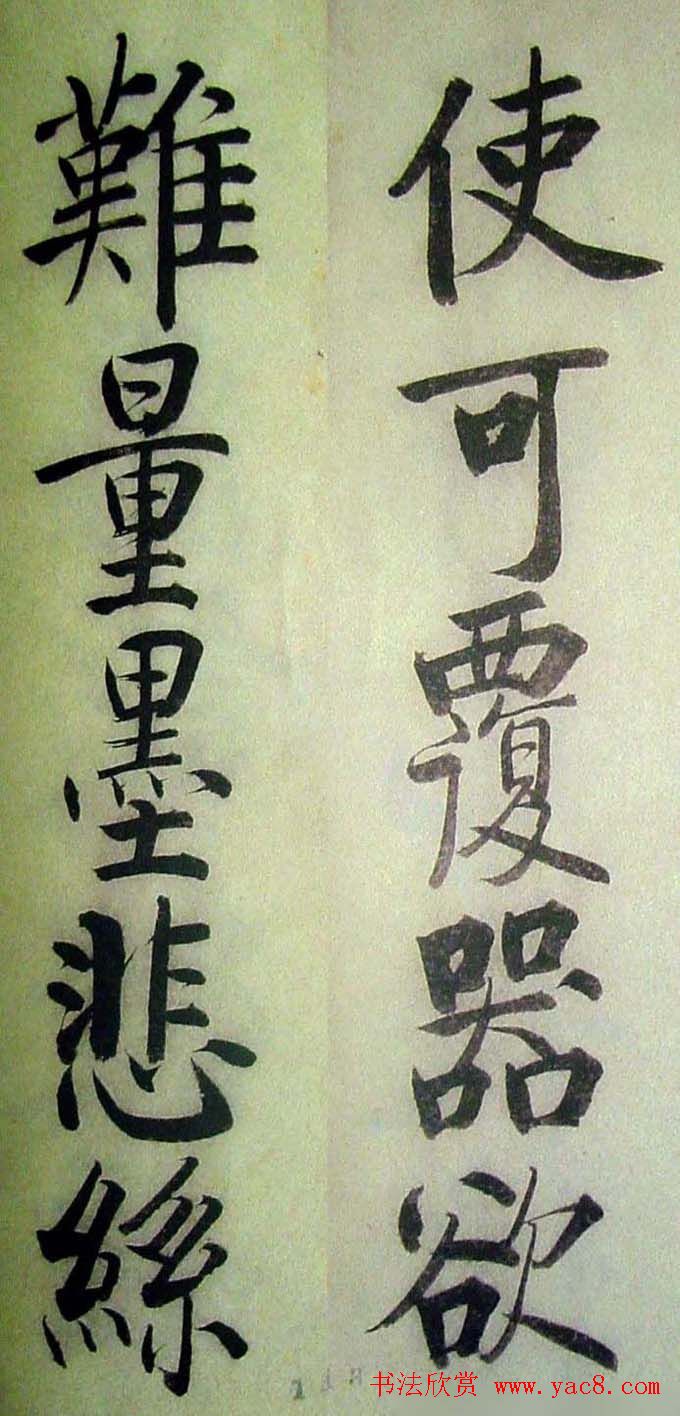 使可覆器欲
難量墨悲絲
书法欣赏 www.yac8.com